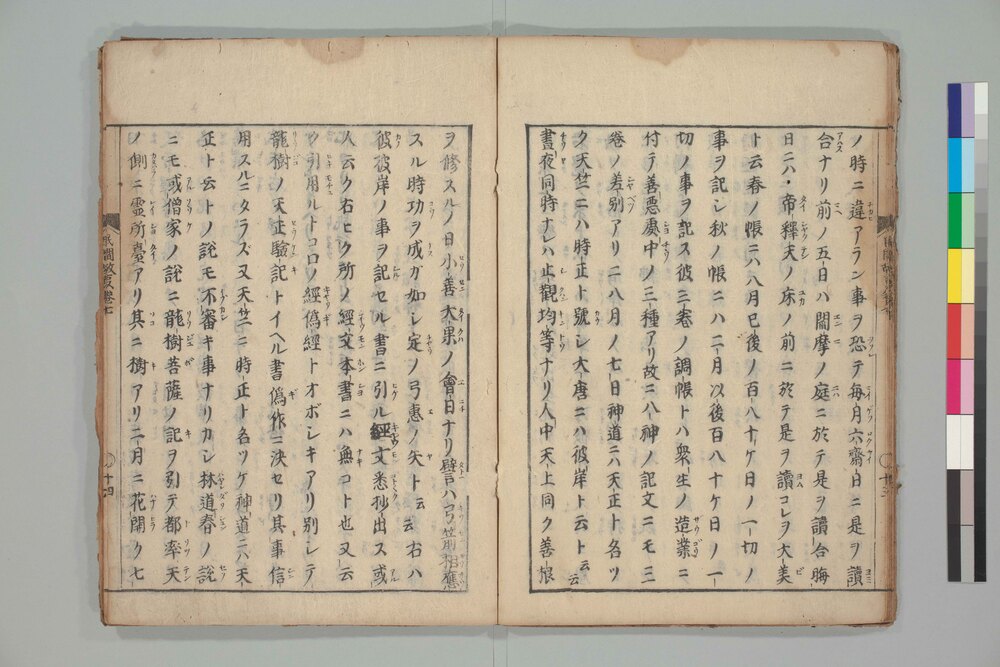 ノ時ニ違アラン事ヲ恐テ毎月六齋日ニ是ヲ讀
合ナリ前ノ五日ハ閻摩ノ庭ニ於テ是ヲ讀合晦
日ニハ帝釋天ノ床ノ前ニ於テ是ヲ讀コレヲ大美
ト云春ノ帳ニハ八月已後ノ百八十ケ日ノ一切ノ
事ヲ記シ秋ノ帳ニハ二月以後百八十ケ日ノ一
切ノ事ヲ記ス彼三卷ノ調帳トハ衆生ノ造業ニ
付テ善悪處中ノ三種アリ故ニハ神ノ記文ニモ三
卷ノ差別アリ二八月ノ七日神道ニハ天正ト名ツ
ク天竺ニハ時正ト號シ大唐ニハ彼岸ト云ト云云
晝夜同時ナレハ止觀均等ナリ人中天上同ク善根
ヲ修スルノ日小善大果ノ會日ナリ譬ハ弓箭相應
スル時功ヲ成ガ如シ定ノ弓惠ノ矢ト云云右ハ
彼彼岸ノ事ヲ記セル書ニ引ル經文悉抄出ス或
人云ク右ヒク所ノ經文本書ニハ無コト也又云
ク引用ルトコロノ經僞經トオボシキアリ別シテ
龍樹ノ天正驗記トイヘル書僞作ニ決セリ其事信
用スルニタラズ又天竺ニ時正ト名ツケ神道ニハ天
正ト云トノ説モ不審キ事ナリカシ林道春ノ説
ニモ或僧家ノ説ニ龍樹菩薩ノ記ヲ引テ都率天
ノ側ニ靈所臺アリ其ニ樹アリ二月ニ花開ク七
民間敏夏卷七
十四